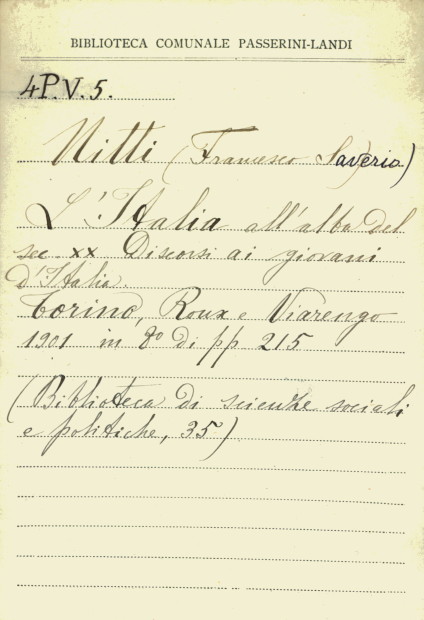 BIBLIOTECA COMUNALE PASSERINI-LANDI
4P.V.5.
Nitti (Francesco Saverio)
L'Italia all'alba del
sec XX Discorsi ai giovani
d'Italia.
Torino, Roux e Viarengo
1901 in 8º di pp 215
(Biblioteca di scienze sociali
e politiche, 35)